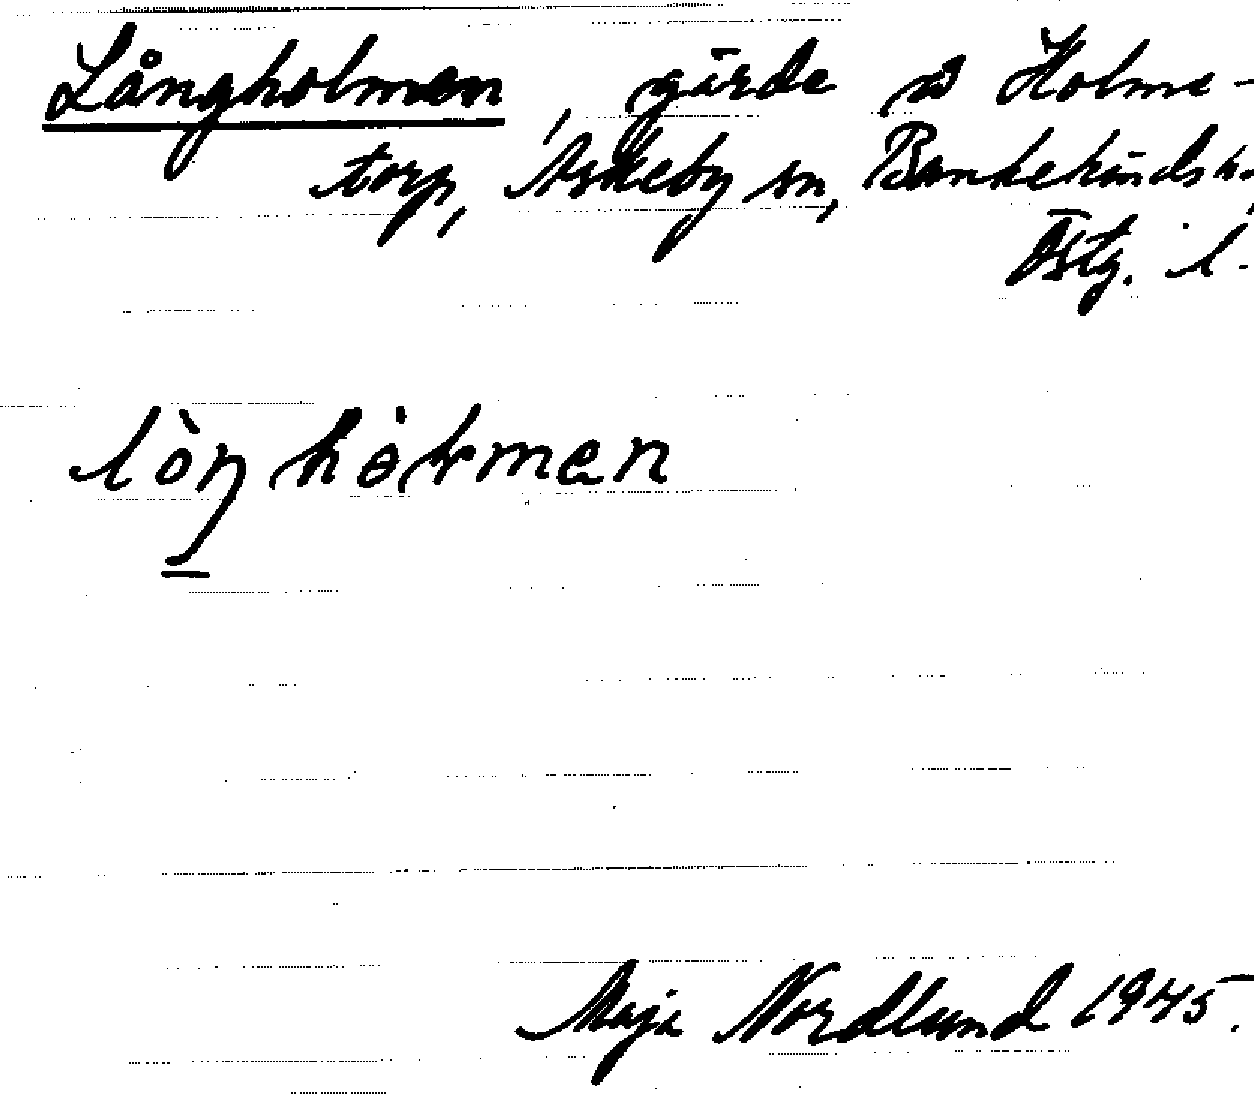 Långholmen, gärde å Holms-
torp, Askeby sn, Bankekinds h.
Östg. l.
lòŋhòlmen
Maja Nordlund 1945.